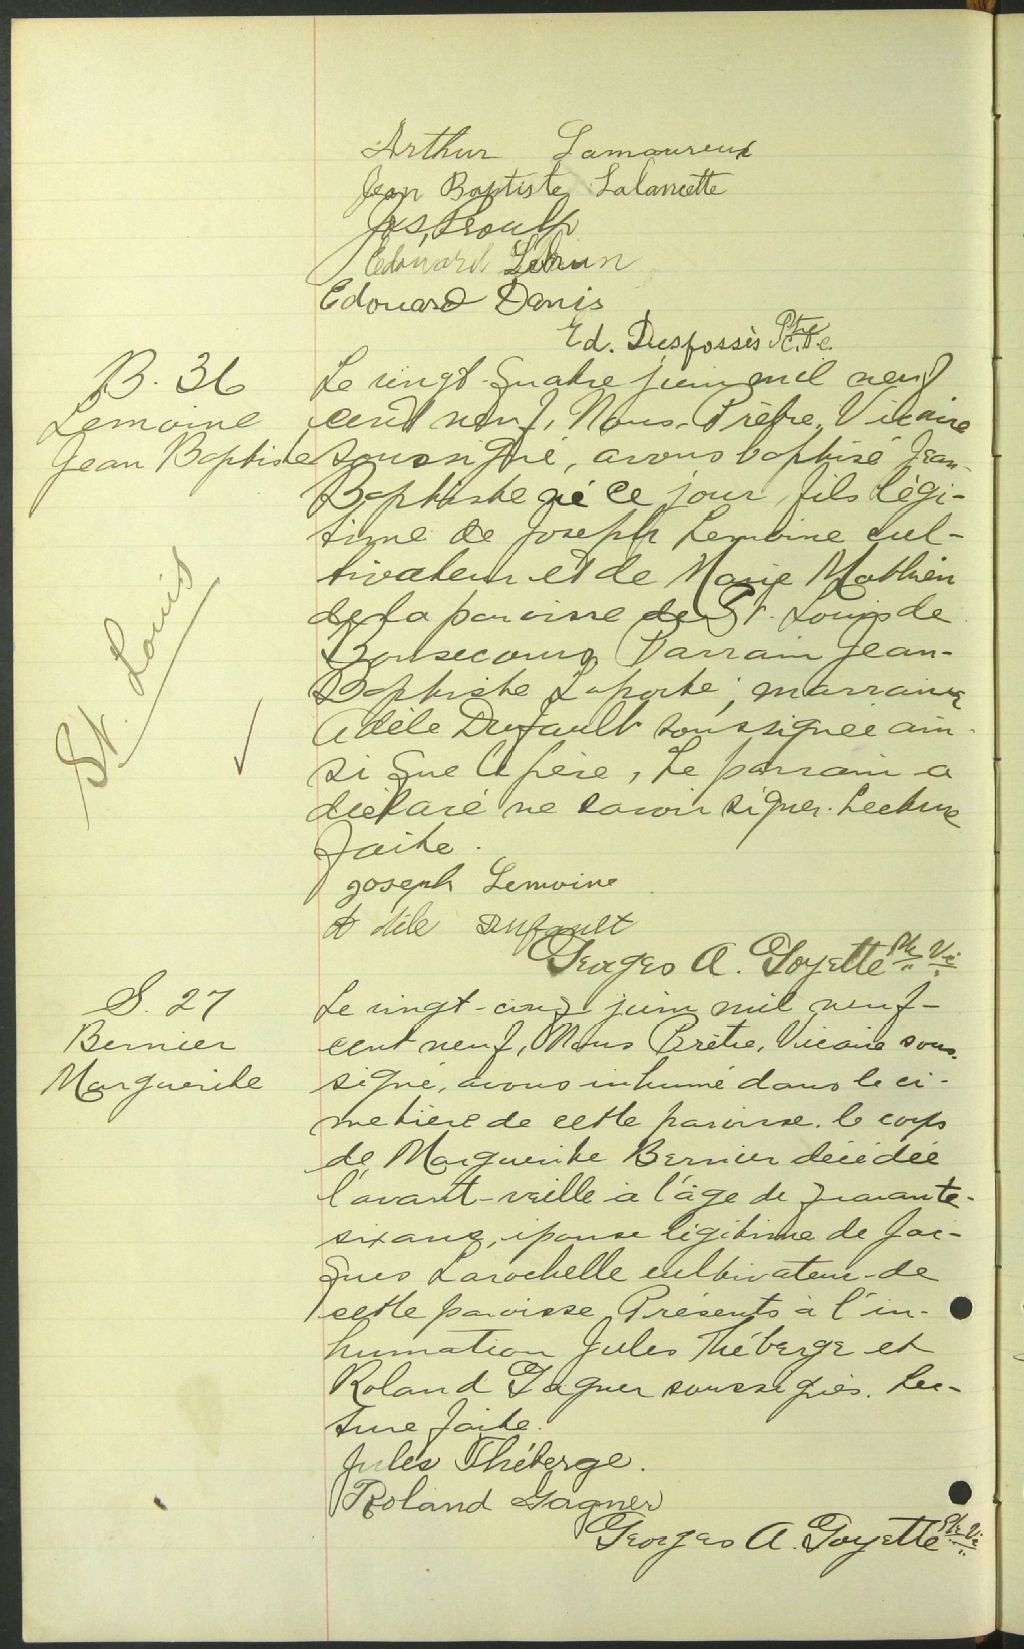 Arthur Lamoureux
Jean Baptiste Lalancette
Jos, Proulx
Edouard Lebrun
Edouard Danis
Ed. Desfossés Ptre
B. 36
Lemoine
Jean Baptiste
St. Louis
Le vingt-quatre juin mil neuf
cent neuf, Nous, Prêtre, Vicaire
soussigné, avons baptisé Jean-
Baptiste né ce jour, fils légi-
time de Joseph Lemoine cul-
tivateur et de Marie Mathieu
de la paroisse de St. Louis de
Bonsecours Parrain Jean-
Baptiste Laporte; marraine
Adèle Dufault soussignée ain-
si que le père, Le parrain a
déclaré ne savoir signer. Lecture
faite.
Joseph Lemoine
A dèle Dufault
Georges A. Goyette Ptre Vic
S. 27
Bernier
Marguerite
Le vingt-cinq juin mil neuf-
cent neuf, Nous Prêtre, Vicaire sous-
signé, avons inhumé dans le ci-
metière de cette paroisse, le corps
de Marguerite Bernier décédée
l'avant-veille à l'âge de quarante-
six ans, épouse légitime de Jac-
ques Larochelle cultivateur de
cette paroisse, Présents à l'in-
humation Jules Théberge et
Roland Gagner soussignés. Lec-
ture faite.
Jules Théberge.
Roland Gagner
Georges A. Goyette Ptre Vic